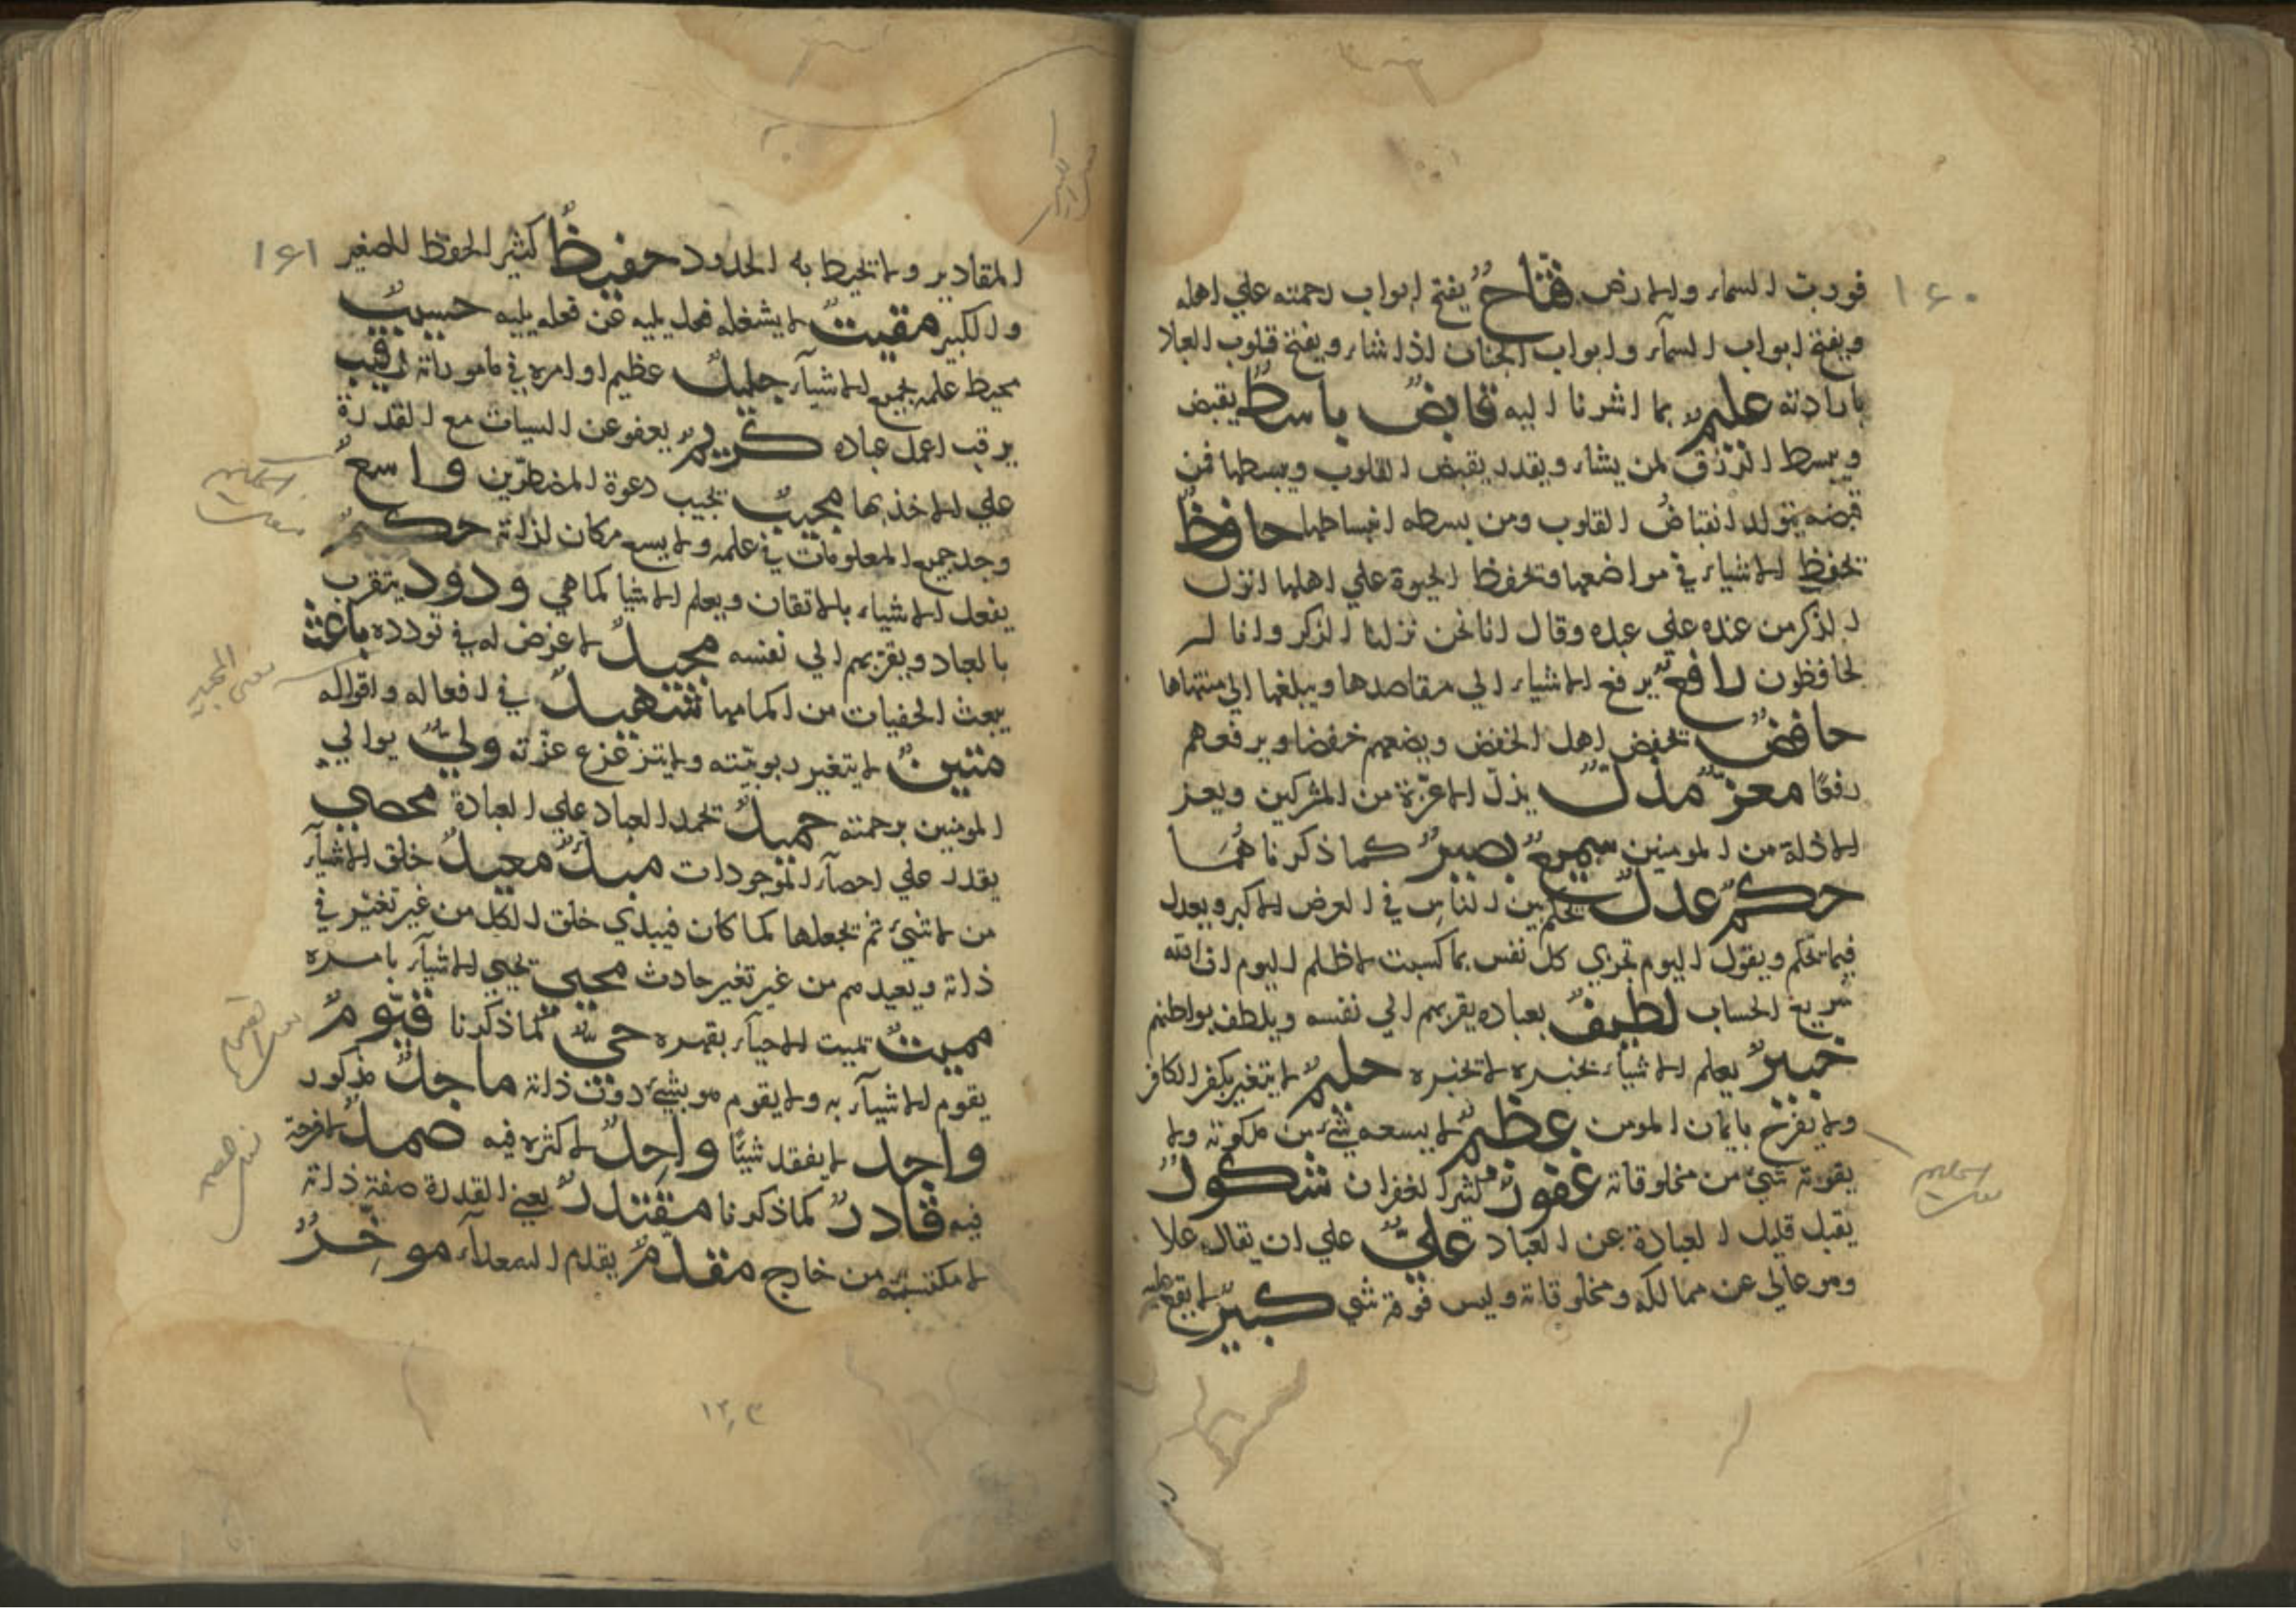 ١٦٠
فورب السماء والارض فتاحٌ يفتح ابواب رحمته علي اهله
ويفتح ابواب السمآء وابواب الجنان اذا شاء ويفتح قلوب
بارادته عليمٌ بما اشرنا اليه قابضٌ باسطٌ يقبض
ويبسط الرزق لمن يشاء ويقدر يقبض القلوب ويبسطها فمن
قبضه يتولد انقباضُ القلوب ومن بسطه انبساطها حافظٌ
يحفظ الاشياء في مواضعها ويحفظ الحيوة علي اهلها انزل
الذكر من عنده علي عبده وقال انا نحن نزلنا الذكر وانا له
لحافظون رافعٌ يرفع الاشياء الي مقاصدها ويبلغها الي منتهاها
خافضٌ يخفض اهل الخفض ويضعهم خفضا ويرفعهم
رفعًا معزٌ مذلٌ يذلّ الاعزة من المشركين ويعز
الاذلة من المومنين سميعٌ بصيرٌ كما ذكرناهما
حكمٌ عدلٌ يحكم بين الناس في العرض الاكبر ويعدل
فيما يحكم ويقول اليوم تجزي كل نفس بما كسبت لا ظلم اليوم ان الله
سريع الحساب لطيفٌ بعباده يقربهم الي نفسه ويلطف بواطنهم
خبيرٌ يعلم الاشياء بخبره لا تخبره حليمٌ لا يتغير بكفر الكافر
ولا يفرح بايمان المومن عظيمٌ لا يسعه شيء من ملكوته ولا
يفوته شيئ من مخلوقاته غفورٌ كثير الغفران شكورٌ
يقبل قليل العبادة عن العباد عليٌّ علي ان يقال علا
وهو عالي عن ممالكه ومخلوقاته وليس فوقه شي كبيرٌ لا يقع عليه
١٦١
المقادير ولا تحيط به الحدود حفيظٌ كثير الحفظ للصغير
والكبير مقيتٌ لا يشغله فعل يليه عن فعله يليه حسيبٌ
محيط علمه بجميع الاشيآء جليلٌ عظيم اوامره في ماموراته رقيب
يرقب اعمل عباده كريمٌ يعفو عن السيات مع القدرة
علي الاخذ بها مجيبٌ يجيب دعوة المضطرّين واسعٌ
وجد جميع المعلومات في علمه ولا يسع مكان لذاته حكيمٌ
يفعل الاشياء بالاتقان ويعلم الاشيا كما هي ودود يتقرب
بالعباد ويقربهم الي نفسه مجيدٌ لا عرض له في تودده باعث
يبعث الخفيات من اكمامها شهيدٌ في افعاله واقواله
متينٌ لا يتغير ربوبيّته ولا يتزعزع عزّته وليٌّ يوالي
المومنين برحمته حميدٌ تحمد العباد علي العبادة محصي
يقدر علي احصآء الموجودات مبدئٌ معيدٌ خلق الاشيآء
من لا شيئ ثم يجعلها كما كان فيبدي خلق الكل من غير تغيّر في
ذاته ويعيدهم من غير تغير حادث محيي يحيي الاشيآء بامره
مميتٌ تميت الاحيآء بقهره حيٌّ كما ذكرنا قيّومٌ
يقوم الاشيآء به ولا يقوم هو بشيئ دون ذاته ماجدٌ مذكور
واجد لا يفقد شيئًا واحدٌ لا كثره فيه صمدٌ لا فرجة
فيه قادرٌ كما ذكرنا مقتدرٌ يعني القدرة صفة ذاته
لا مكتسبة من خارج مقدمٌ يقدم السعدآء موخِّرٌ
١٢٣